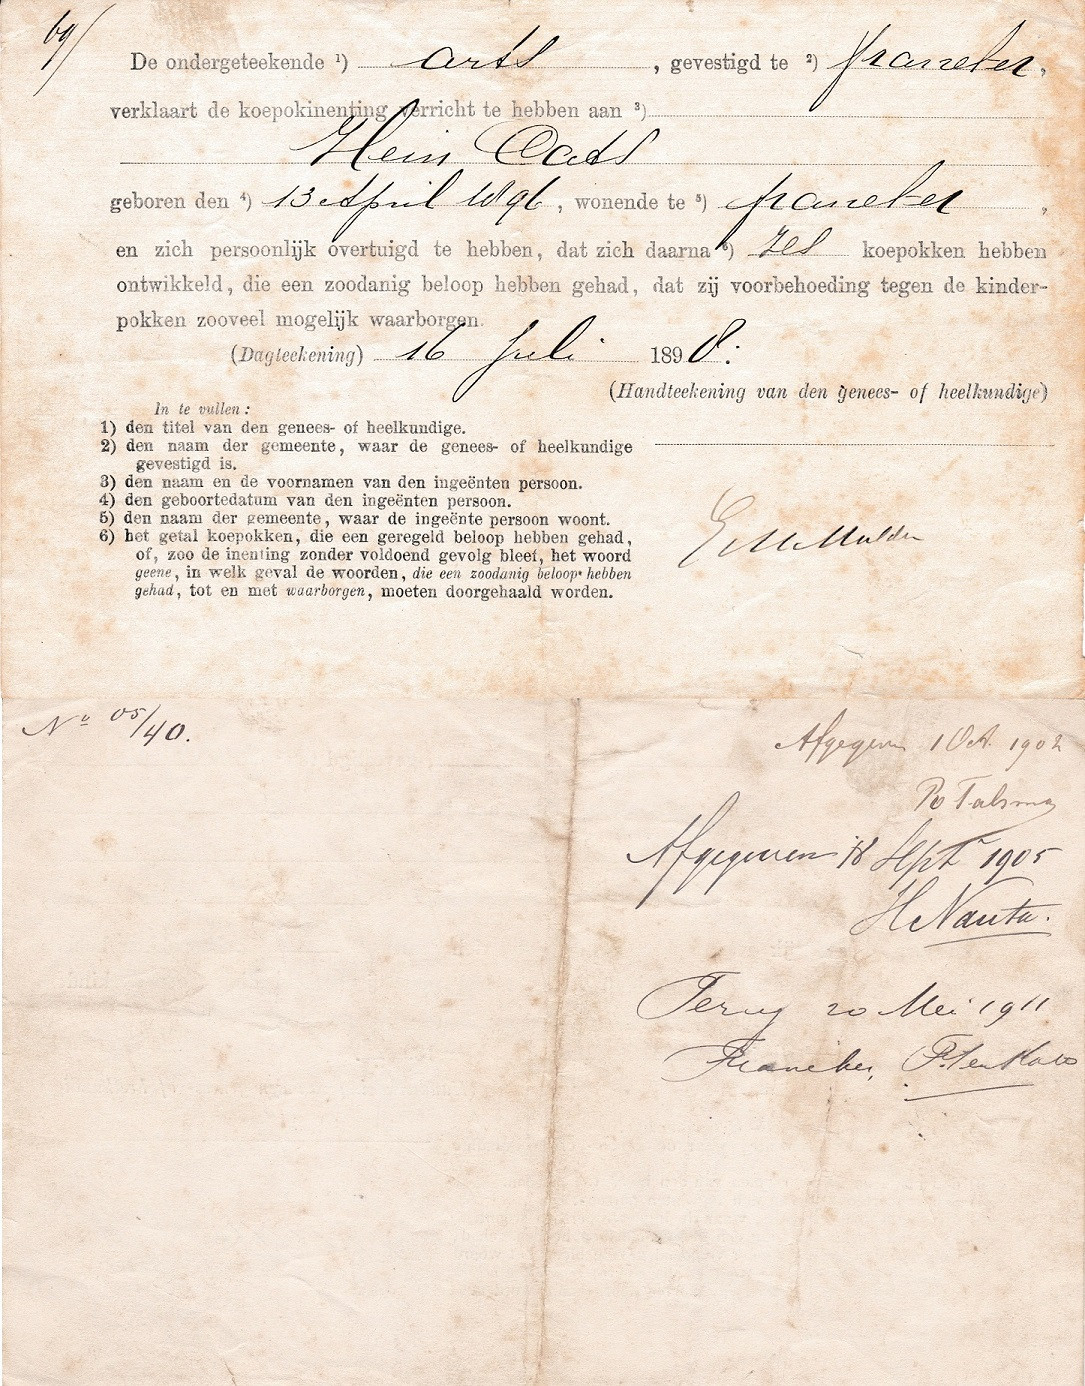 69/
De ondergeteekende ¹) arts, gevestigd te ²) Franeker,
verklaart de koepokinenting verricht te hebben aan ³)
Hein Oats
geboren den ⁴) 13 April 1896, wonende te ⁵) Franeker,
en zich persoonlijk overtuigd te hebben, dat zich daarna ⁶) zes koepokken hebben
ontwikkeld, die een zoodanig beloop hebben gehad, dat zij voorbehoeding tegen de kinder-
pokken zooveel mogelijk waarborgen.
(Dagteekening) 16 Juli 1898.
(Handteekening van den genees- of heelkundige)
In te vullen:
1) den titel van den genees- of heelkundige.
2) den naam der gemeente, waar de genees- of heelkundige
gevestigd is.
3) den naam en de voornamen van den ingeënten persoon.
4) den geboortedatum van den ingeënten persoon.
5) den naam der gemeente, waar de ingeënte persoon woont.
6) het getal koepokken, die een geregeld beloop hebben gehad,
of, zoo de inenting zonder voldoend gevolg bleef, het woord
geene, in welk geval de woorden, die een zoodanig beloop hebben
gehad, tot en met waarborgen, moeten doorgehaald worden.
Mulder
No 05/40.
Afgegeven 1 Oct. 1902
Talsma
Afgegeven 18 Sept 1905
H Nauta.
Terug 20 Mei 1911
Franeker,